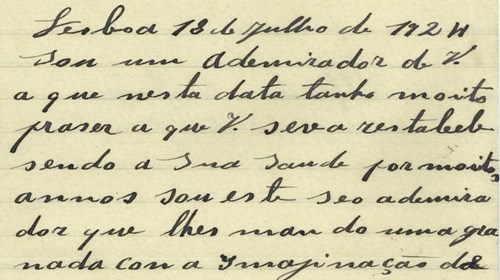 Lesboa 13 de Julho de 1924
Sou um Ademirador de V.
a que nesta data tanho moito
praser a que V. seva restabele
sendo a Sua Saude por moitos
annos sou este seo ademira
dor que lhes man do uma gra
nada con a Imajinaçao de